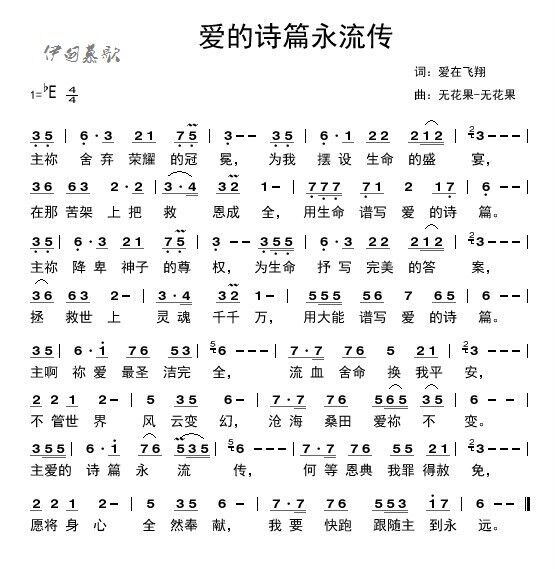 爱的诗篇永流传
伊甸慕歌
词：爱在飞翔
1=♭E 4/4
曲：无花果-无花果
35 | 6·3 21 75 | 3-- 35 | 6·1 22 212 | 3--
主祢 舍弃 荣耀 的冠 冕， 为我 摆设 生命 的盛 宴，
36 63 2·2 | 3·4 32 1- | 777 71 2 17 | 6-
在那 苦架 上把 救 恩成 全， 用生命 谱写 爱 的诗 篇。
35 | 6·6 21 75 | 3-- 355 | 6·3 22 212 | 3--
主祢 降卑 神子 的尊 权， 为生命 抒写 完美 的答 案，
36 63 2- | 3·4 32 1- | 555 56 7 65 | 6--
拯 救世 上 灵魂 千千 万， 用大能 谱写 爱 的诗 篇。
35 | 6·1 76 53 | 6-- | 7·7 76 5 21 | 3--
主啊 祢爱 最圣 洁完 全， 流血 舍命 换 我平 安，
2 22 2- | 5 35 6- | 7·7 76 565 35 | 2--
不 管世 界 风 云变 幻， 沧海 桑田 爱祢 不 变。
355 | 6·1 76 535 | 6-- | 7·7 75 67 53 | 6--
主爱的 诗篇 永 流 传， 何等 恩典 我罪 得赦 免，
2 22 2- | 5 35 6- | 7·7 76 553 17 | 6--
愿将 身 心 全 然奉 献， 我要 快跑 跟随主 到永 远。